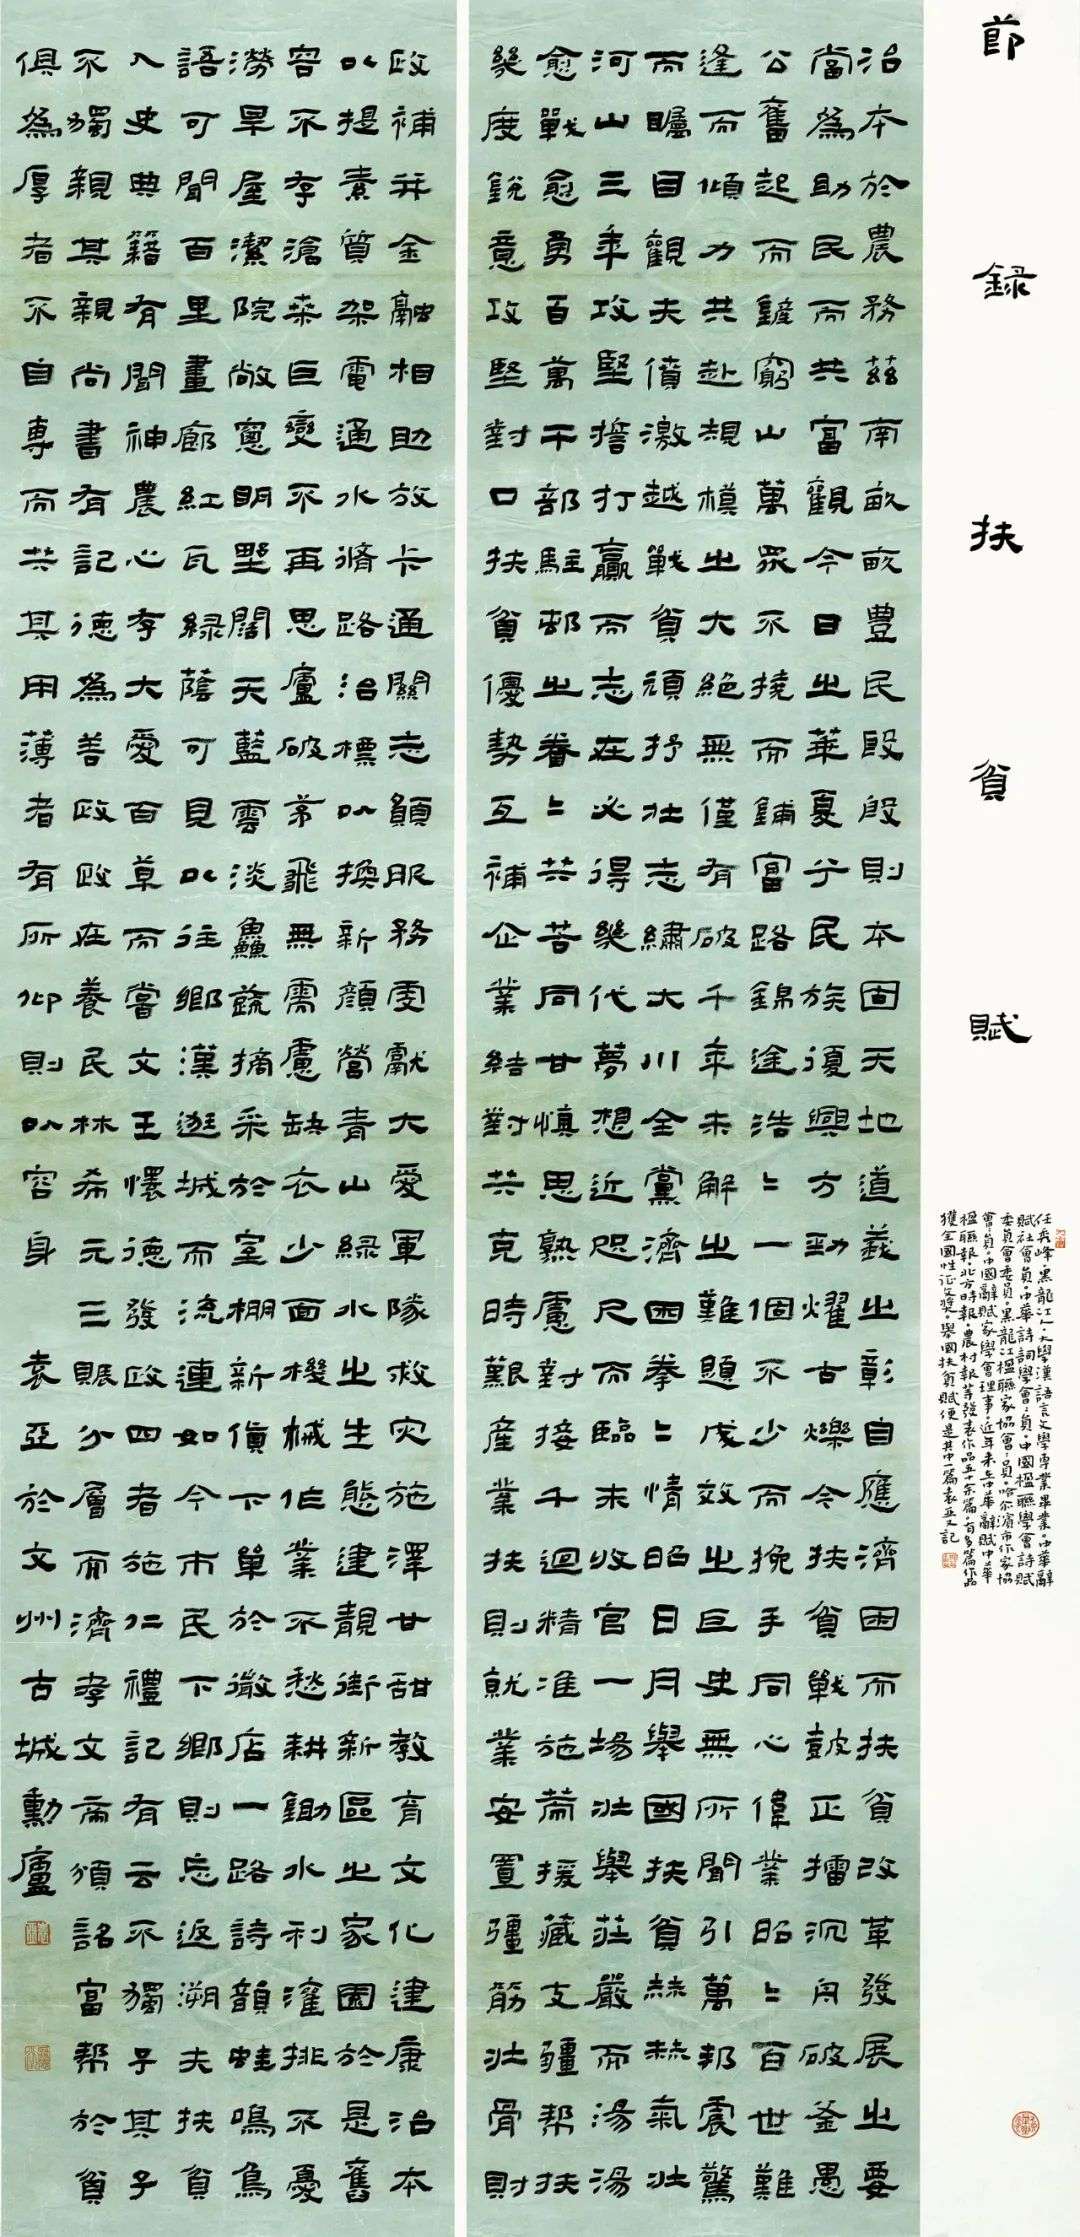 節錄扶貧賦
任兵峰黑龍江人大學漢語言文學專業畢業中華辭
賦社會員中華詩詞學會會員中國楹聯學會詩賦
委員會委員黑龍江楹聯家協會會員哈尔濱市作家協
會會員中國辭賦家學會理事近年来在中華辭賦中華
楹聯報北方時報農村報等發表作品五十余篇有多篇作品
獲全國性征文獎舉國扶貧賦便是其中一篇袁亚文記
治本於農務茲南畝畝豐民殷殷則本固天地道義之彰自應濟困而扶貧改革發展之要
當為助民而共富觀今日之華夏兮民族復興方勁耀古爍今扶貧戰鼓正擂沉舟破釜愚
公舊起而鏟窮山萬眾不撓而鋪富路錦途浩二一個不少而挽手同心偉業昭二百世難
逢而傾力共赴規模之大絕無僅有破千年未解之難題成效之巨史無所聞引萬邦震驚
而矚目觀夫僨激越戰貧頑抒壯志繡大川全黨濟困拳二情昭日月舉國扶貧赫赫氣壯
河山三年攻堅打贏而志在必得幾代夢想近咫尺而臨末收官一場壯舉莊嚴而湯湯
愈戰愈勇百萬干部駐邨之眷二共苦同甘慎思熟慮對接千迴精准施策援藏支疆幫扶
幾度銳意攻堅對口扶貧優勢互補企業結對共克時艱產業扶則就業安置彊筋壯骨則
政補并金融相助放卡通關志願服務雯獻大愛軍隊救灾施澤甘甜教育文化建康治本
以提素質架電通水脩路治標以換新顏營青山綠水之生態建靚街新區之家園於是舊
容不存滄桑巨變不再思廬破茅飛無需慮缺衣少面機械作業不愁耕鋤水利灌排不憂
澇旱屋潔院敞窗明野闊天藍雲淡鱻蔬摘采於室棚新貨下單於微店一路詩韻蛙鳴鳥
語可聞百里畫廊紅瓦綠蔭可見以往鄉漢逛城而流連如今市民下鄉則忘返溯夫扶貧
入史典籍有聞神農心存大愛百草而嘗文王懷德發政四者施仁禮記有云不獨子其子
不獨親其親尚書有記德為善政政在養民林希元三賑分層而濟孝文帝頒詔富幫於貧
俱為厚者不自專而共其用薄者有所仰則以容身袁亞於文州古城勳廬